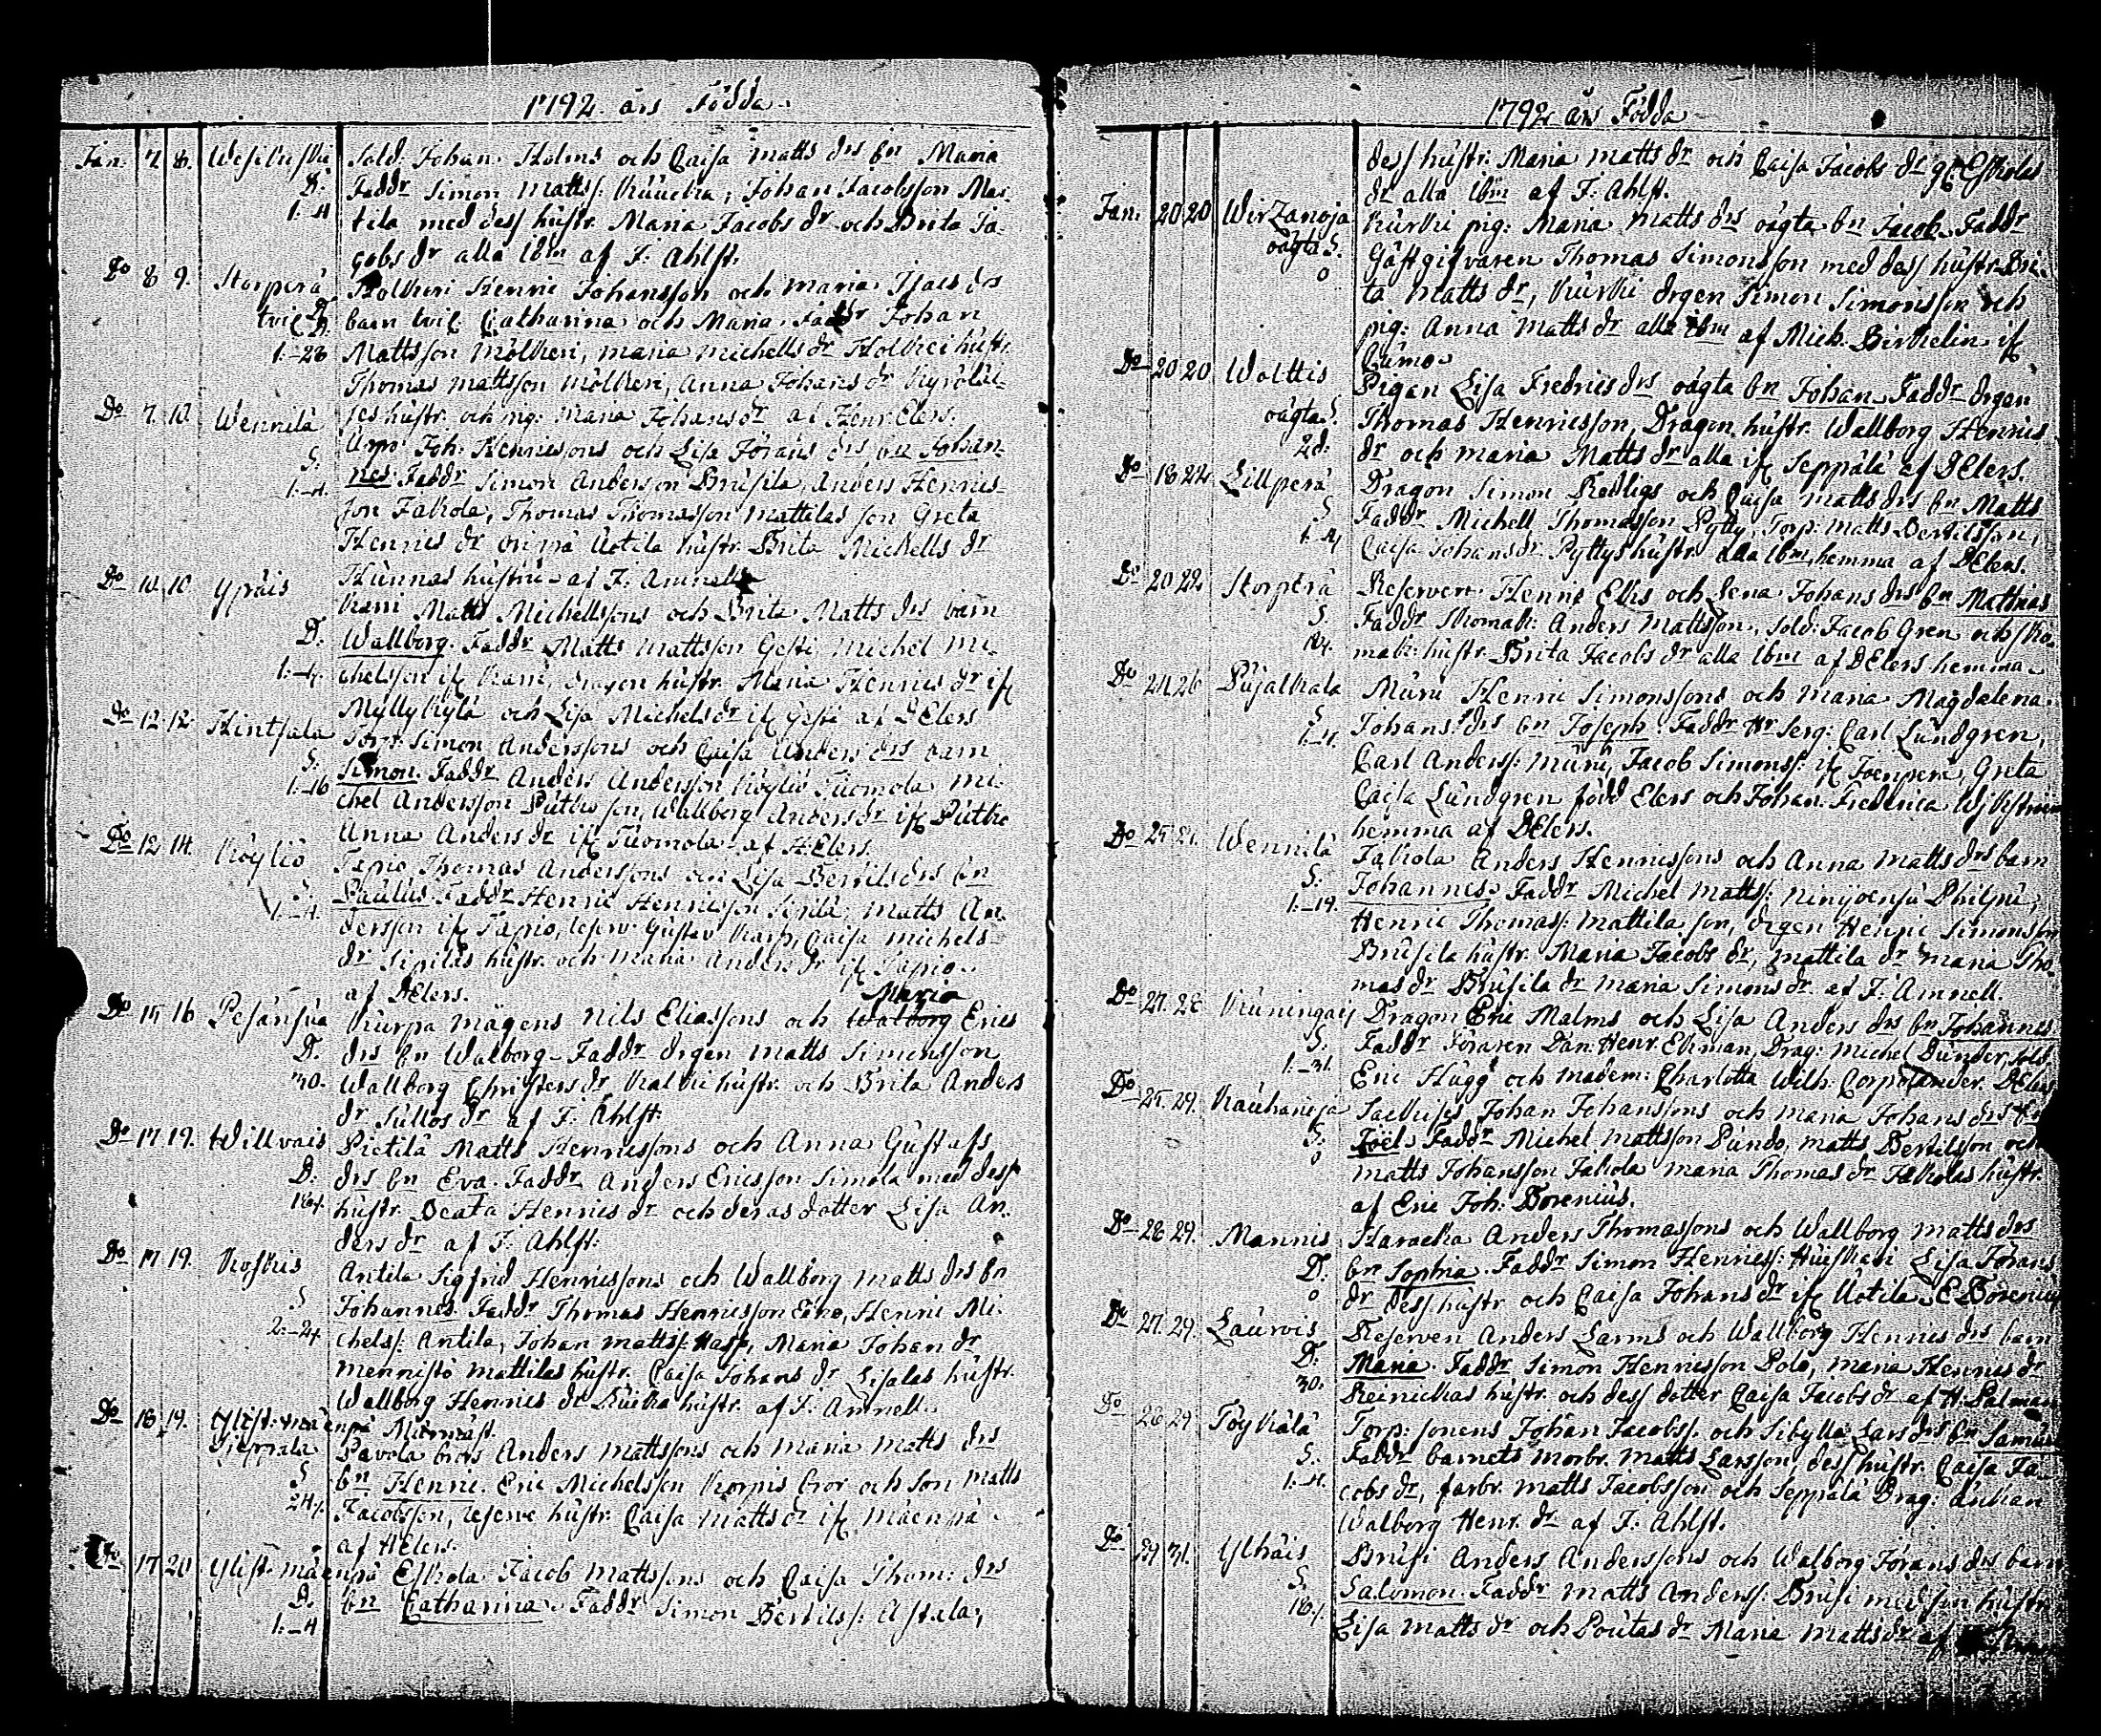 1792 års Födda
Jan. 7 8. Sold: Johan Holms och Caisa Matts drs bn Maria
D. Faddr Simon Matts: Johan Jacobsson Mar-
1:-4 tila med dess hustr. Maria Jacobs dr och Brita Ja-
cobs dr alla ibm af J: Ahlst.
Do 8 9. Storperä Holkeri Henric Johansson och Maria drs
tvil. D. D. barn tvil. Catharina och Maria. Faddr Johan
1:-28 Mattsson Mölkeri, Maria Michells dr Holkeri hustr.
Thomas Mattsson Mölkeri, Anna Johans dr
Do 7. 10. Wennilä hustr. och pig: Maria Johans dr af Henr. Elers.
Joh: Henricssons och Lisa Jörans drs bn Johan-
S. nes. Faddr Simon Andersson Brusila, Anders Henrics-
1:-4. son Jakola, Thomas Thomasson Mattilas son Greta
Henrics dr Uotila hustr. Brita Michells dr
Do 10. 10 Ypäis hustru af J. Amnell
Kani Matts Michellssons och Brita Matts drs barn
D. Wallborg. Faddr Matts Mattsson Gesti Michel Mi-
1:-4. chelsson if Kani, Dragon hustr. Maria Henrics dr if
Myllykylä och Lisa Michels dr if Gesti af DElers
Do 12 12 Hintsala Torp: Simon Anderssons och Caisa Anders drs barn
S. Simon. Faddr Anders Andersson Köyliö Tuomola Mi-
1:-16 chel Andersson son, Wallborg Anders dr if
Anna Anders dr if Tuomola af HElers.
Do 12 14. Köyliö Tapio Thomas Anderssons och Lisa Bertils drs bn
S. Paulus. Faddr Henric Henricsson Sipilä, Matts An-
1:-4. dersson if Tapio, reserv: Gustav Karp, Caisa Michels
dr Sipiläs hustr. och Maria Anders dr if Tapio
af DElers. Maria
Do 15 16 Pesänsuu Kurpa mågens Nils Eliassons och Walborg Erics
D. drs bn Walborg. Faddr drgen Matts Simonsson
30. Wallborg Christers dr hustr. och Brita Anders
dr Sullos dr af J: Ahlst.
Do 17 19. Willvais Pietilä Matts Henricssons och Anna Gustafs
D. drs bn Eva. Faddr Anders Ericsson Simola med dess
hustr. Beata Henrics dr och deras dotter Lisa An-
ders dr af J: Ahlst.
Do 17 19. Koskis Antila Sigfrid Henricssons och Wallborg Matts drs bn
S. Johannes. Faddr Thomas Henricsson Eiko, Henric Mi-
2:-24. chelss: Antila, Johan Mattss: Maria Johan dr
Mennistö Mattilas hustr. Caisa Johans dr hustr.
Wallborg Henrics dr hustr. af J: Amnell.
Do 18 19. Ylist.
Pavola brors Anders Mattssons och Maria Matts drs
S. bn Henric. Eric Michelsson Korpis bror och son Matts
24. Jacobsson, reserve hustr. Caisa Matts dr if Mäenpä
af HElers.
Do 17 20 Ylist. mäenpä Eskola Jacob Mattssons och Caisa Thom: drs
D. bn Catharina. Faddr Simon Bertilss:
1:-4
1792 års Födda
dess hustr. Maria Matts dr och Caisa Jacobs dr gl. Eskolas
dr alla ibm af J: Ahlst.
Jan. 20 20 Wirzanoja Kurki pig: Maria Matts drs oägta bn Jacob. Faddr
oägta S. Gästgifvaren Thomas Simonsson med dess hustr. Bri-
0 ta Matts dr, Kurki drgen Simon Simonsson och
pig: Anna Matts dr alla ibm af Mich. Birkelin if
Cumo
Do 20 20 Walttis Pigan Lisa Fredrics drs oägta bn Johan. Faddr drgen
oägta S. Thomas Henricsson, Dragon hustr. Wallborg Henrics
2d: dr och Maria Matts dr alla if Seppälä af DElers.
Do 18 22 Lillperä Dragon Simon Redligs och Caisa Matts drs bn Matts
S Faddr Michell Thomasson Pytty, Torp: Matts Bertilsson,
1:-4 Caisa Johans dr Pyttys hustr. alla ibm, hemma af DElers.
Do 20 22 Storperä Reserven Henric Elks och Lena Johans drs bn Mathias
S. Faddr Skomak: Anders Mattsson, Sold: Jacob Gren och Sko-
mak: hustr. Brita Jacobs dr alla ibm af DElers hemma
Do 24 26 Pujalkala Muru Henric Simonssons och Maria Magdalena
S Johans drs bn Joseph. Faddr Hr Serg: Carl Lundgren,
1:-4. Carl Anderss: Muru, Jacob Simonss: if Joenperä, Greta
Caisa Lundgren född Elers och Johan: Frederica
hemma af DElers.
Do 25 Wennilä Jakola Anders Henricssons och Anna Matts drs barn
S. Johannes. Faddr Michel Matts:
1:-14. Henric Thomas: Mattila son, drgen Henric Simonsson
Brusila hustr. Maria Jacobs dr, Mattila dr Maria Tho-
mas dr Brusila dr Maria Simons dr af J: Amnell.
Do 27. 28 Kuningais Dragon Eric Malms och Lisa Anders drs bn Johannes
S. Faddr Föraren Dan: Henr. Ekman, Drag: Michel Dunder, Sold
Eric Hugg och Madem: Charlotta Wilh. Corpolander. DElers
Do 25. 29. Kauhanoja Johan Johanssons och Maria Johans drs
S. Joel. Faddr Michel Mattsson Pundo, Matts Bertilsson och
0 Matts Johansson Jakola Maria Thomas dr Jakolas hustr.
af Eric Joh: Borenius.
Do 28 29. Mannis Haracka Anders Thomassons och Wallborg Matts drs
D. bn Sophia. Faddr Simon Henricss: Lisa Jörans
0 dr dess hustr och Caisa Johans dr if Uotila. E Borenius
Do 27. 29. Laurois Reserven Anders Larms och Wallborg Henrics drs barn
D. Maria. Faddr Simon Henricsson Polo, Maria Henrics dr
30. Reinickas hustr. och dess dotter Caisa Jacobs dr af H: Palman
Do 28 29 Töykälä Torp: sonens Johan Jacobss: och Sibylla Lars drs bn
S. Faddr barnets morbr. Matts Larsson dess hustr. Caisa Ja-
1:-4. cobs dr, farbr. Matts Jacobsson och Seppälä Drag: änkan
Walborg Henr. dr af J: Ahlst.
Do 31. Ylhäis Brusi Anders Anderssons och Walborg Jörans drs barn
S. Salomon. Faddr Matts Anderss: Brusi med sin hustr.
Lisa Matts dr och Poutas dr Maria Matts dr af